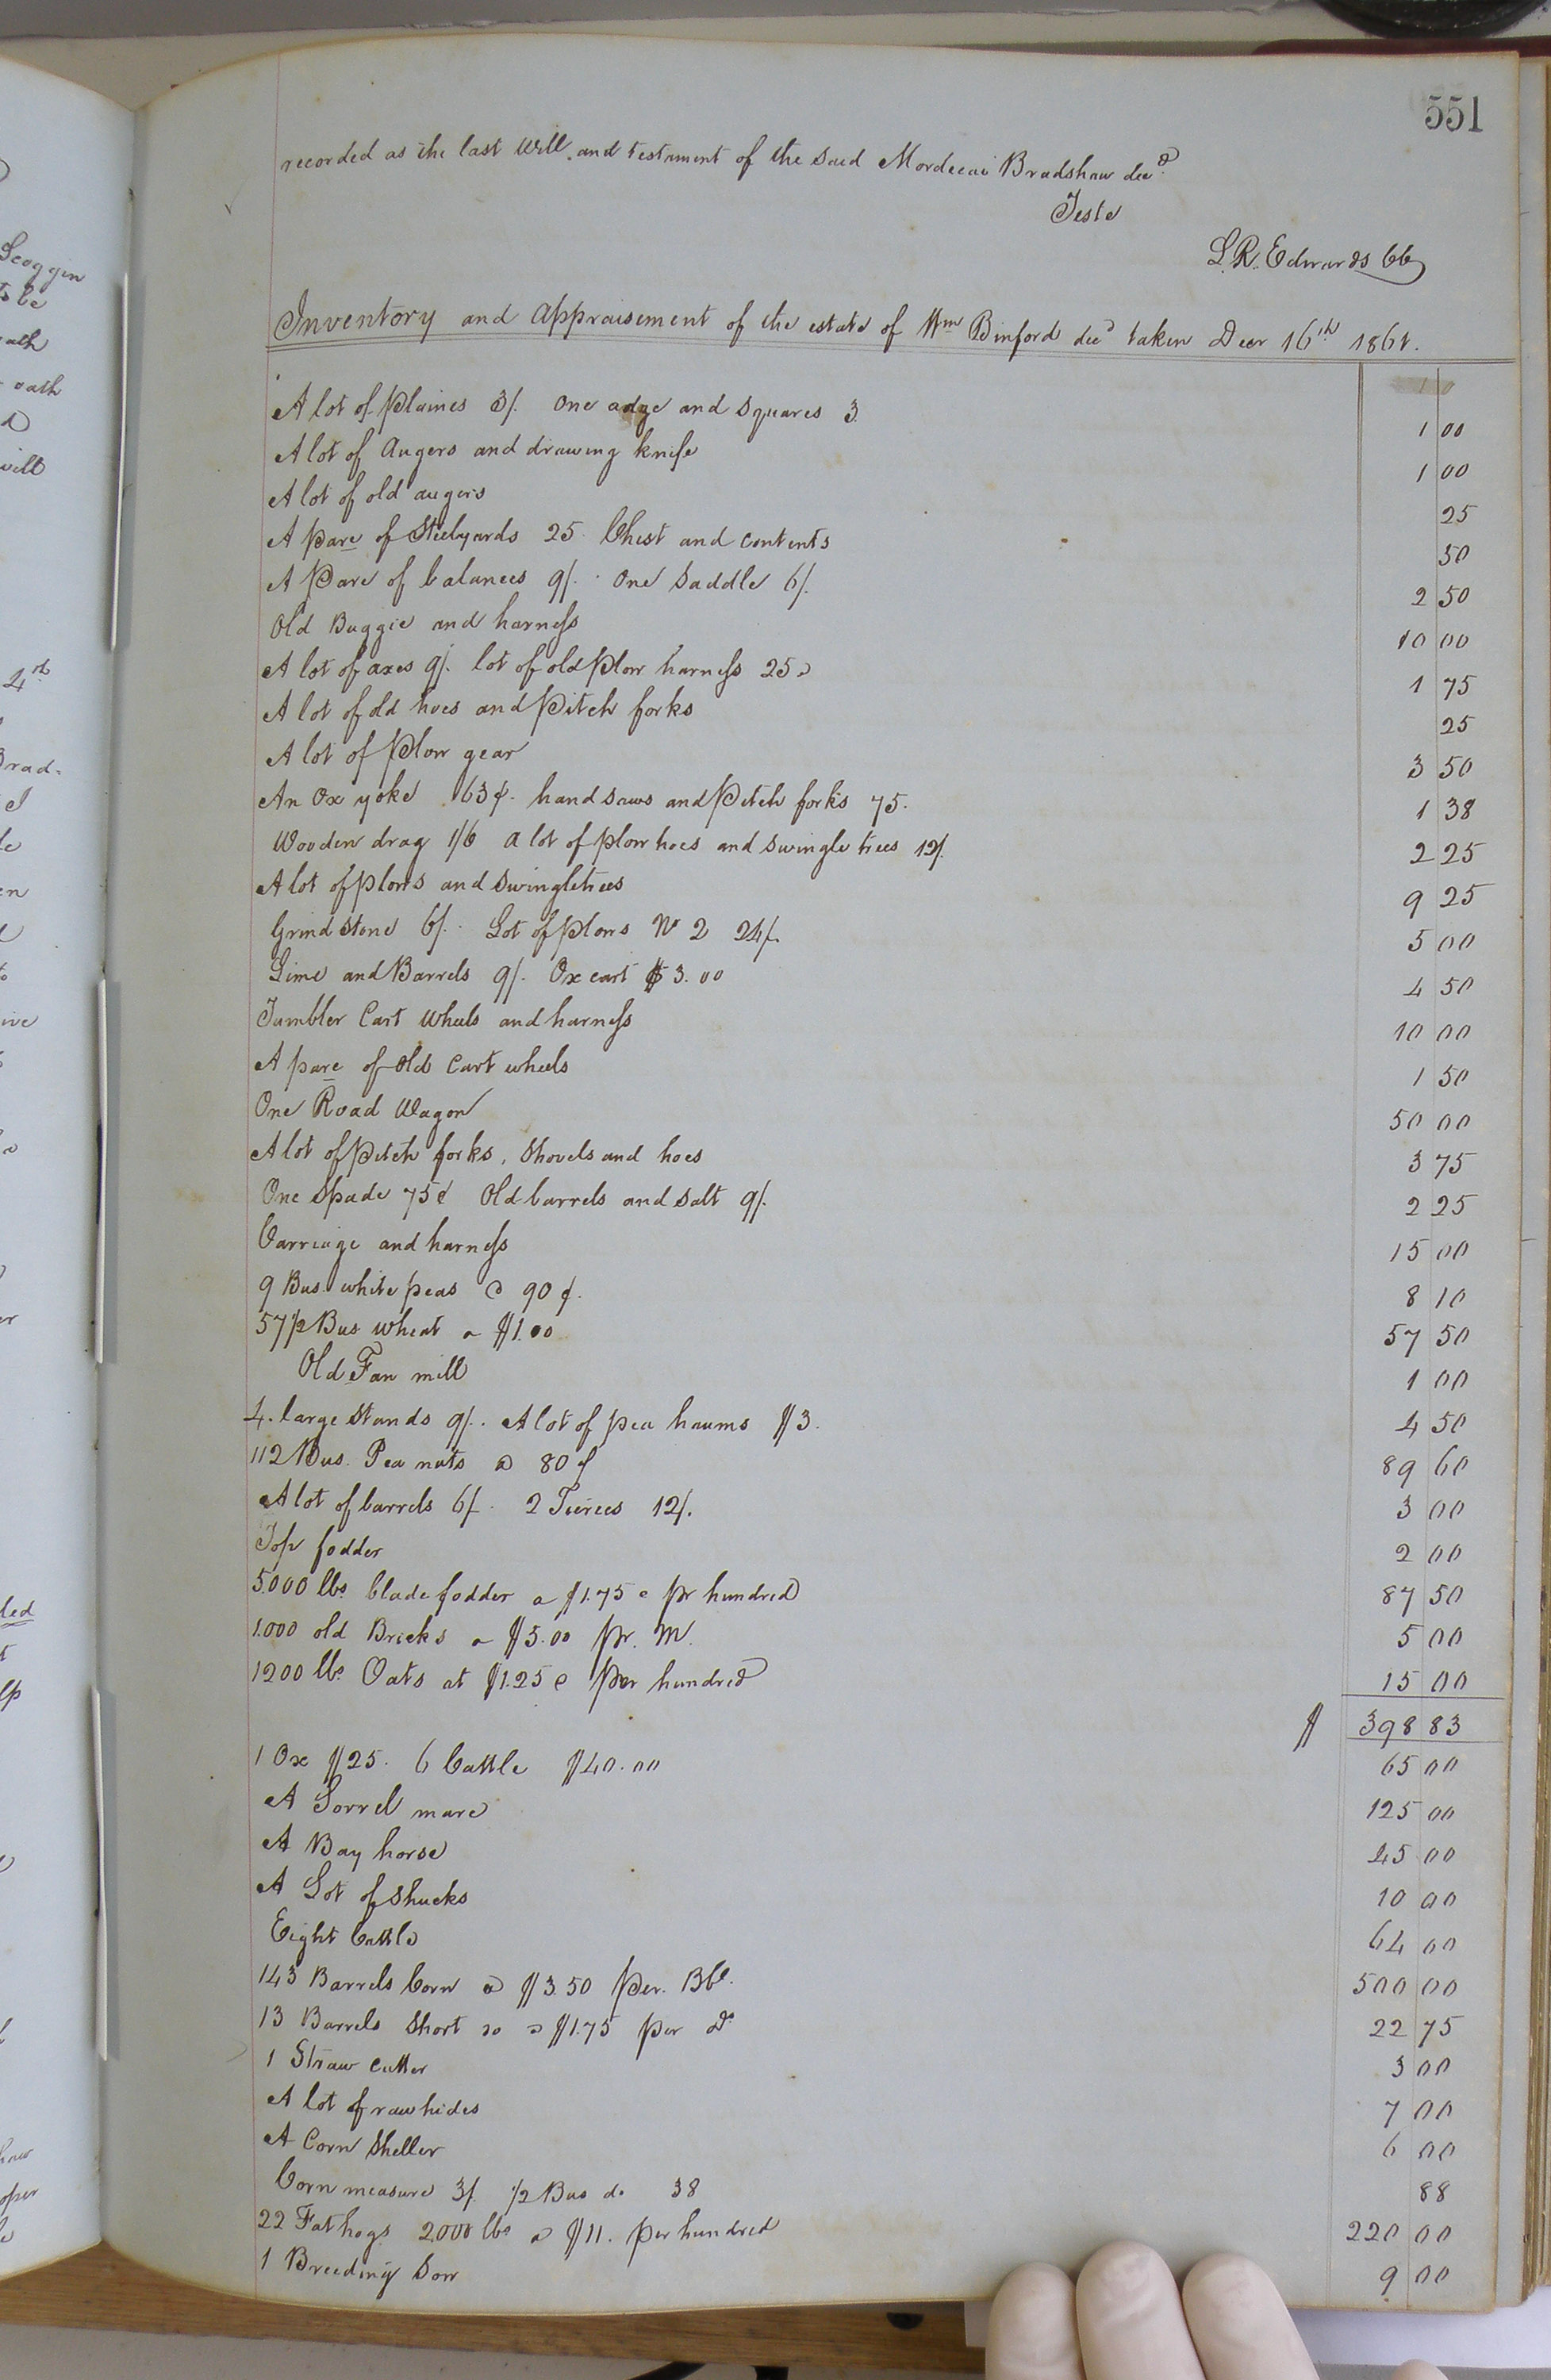 551
recorded as the last Will and testament of the said Mordecai Bradshaw decd.
Teste
L. R. Edwards CC
Inventory and Appraisement of the estate of Wm Binford decd taken Decr 16th 1861.
A lot of Plaines 3/. One adge and squares 3. 1 00
A lot of Augers and drawing knife 1 00
A lot of old augers 25
A pare of Steelyards 25 Chest and contents 50
A Pare of balances 9/. One Saddle 6/. 2 50
Old Buggie and harness 10 00
A lot of axes 9/. lot of old Plow harness 25c 1 75
A lot of old hoes and Pitch forks 25
A lot of Plow gear 3 50
An Ox yoke 63¢. hand saws and Pitch forks 75. 1 38
Wooden drag 1/6 a lot of plow hoes and swingle trees 12/. 2 25
A lot of plows and swingletrees 9 25
Grind stone 6/. Lot of Plows No 2 24/. 5 00
Lime and Barrels 9/. Ox cart $3.00 4 50
Tumbler Cart Wheels and harness 10 00
A pare of old Cart wheels 1 50
One Road Wagon 50 00
A lot of Pitch forks, Shovels and hoes 3 75
One Spade 75¢ Old barrels and salt 9/. 2 25
Carriage and harness 15 00
9 Bus. white peas @ 90¢. 8 10
57 1/2 Bus wheat a $1.00 57 50
Old Fan mill 1 00
4. large Stands 9/. A lot of pea haums $3. 4 50
112 Bus. Pea nuts @ 80¢ 89 60
A lot of barrels 6/. 2 Tierces 12/. 3 00
Top fodder 2 00
5.000 lbs. blade fodder a $1.75c pr hundred 87 50
1.000 old Bricks a $5.00 pr. M. 5 00
1200 lbs. Oats at $1.25c Per hundred 15 00
$ 398 83
1 Ox $25. 6 Cattle $40.00 65 00
A Sorrel mare 125 00
A Bay horse 45 00
A Lot of Shucks 10 00
Eight Cattle 64 00
143 Barrels Corn @ $3.50 Per. Bbl. 500 00
13 Barrels Short do @ $1.75 per do 22 75
1 Straw cutter 3 00
A lot of rawhides 7 00
A Corn Sheller 6 00
Corn measure 3/. 1/2 Bus do 38 88
22 Fat hogs 2,000 lbs @ $11. per hundred 220 00
1 Breeding Sow 9 00